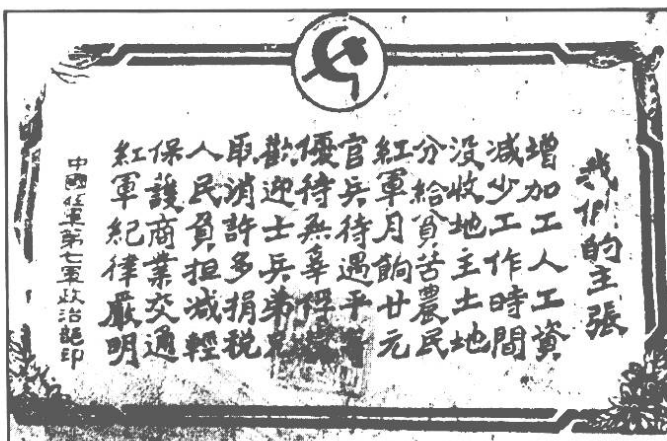 我们的主張
增加工人工資
減少工作時間
没收地主土地
分給貧苦農民
紅軍月餉廿元
官兵待遇平等
優待無辜俘虜
歡迎士兵弟兄
取消許多捐税
人民負担減輕
保護商業交通
紅軍紀律嚴明
中國紅軍第七軍政治部印